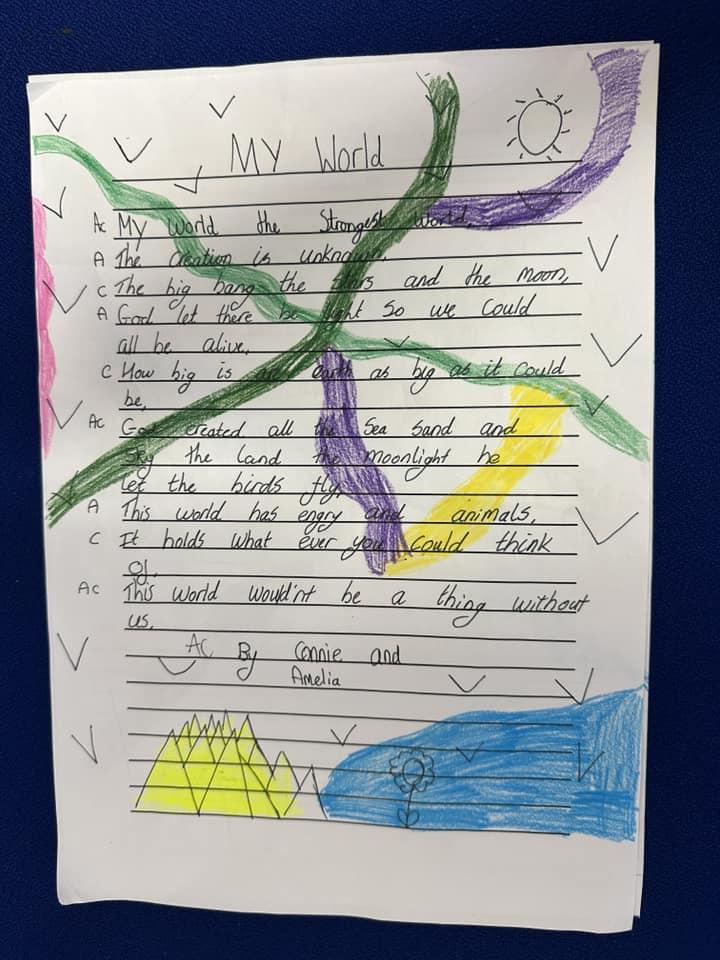 MY World
Ac My world the Strongest world,
A The Creation is unknown.
C The big bang the stars and the moon,
A God let there be light So we could
all be alive.
C How big is are earth as big as it could
be,
Ac God created all the Sea Sand and
Sky the land the moonlight he
let the birds fly,
A This world has engry and animals,
C It holds what ever you could think
of.
Ac This world would'nt be a thing without
us.
AC By Connie and
Amelia